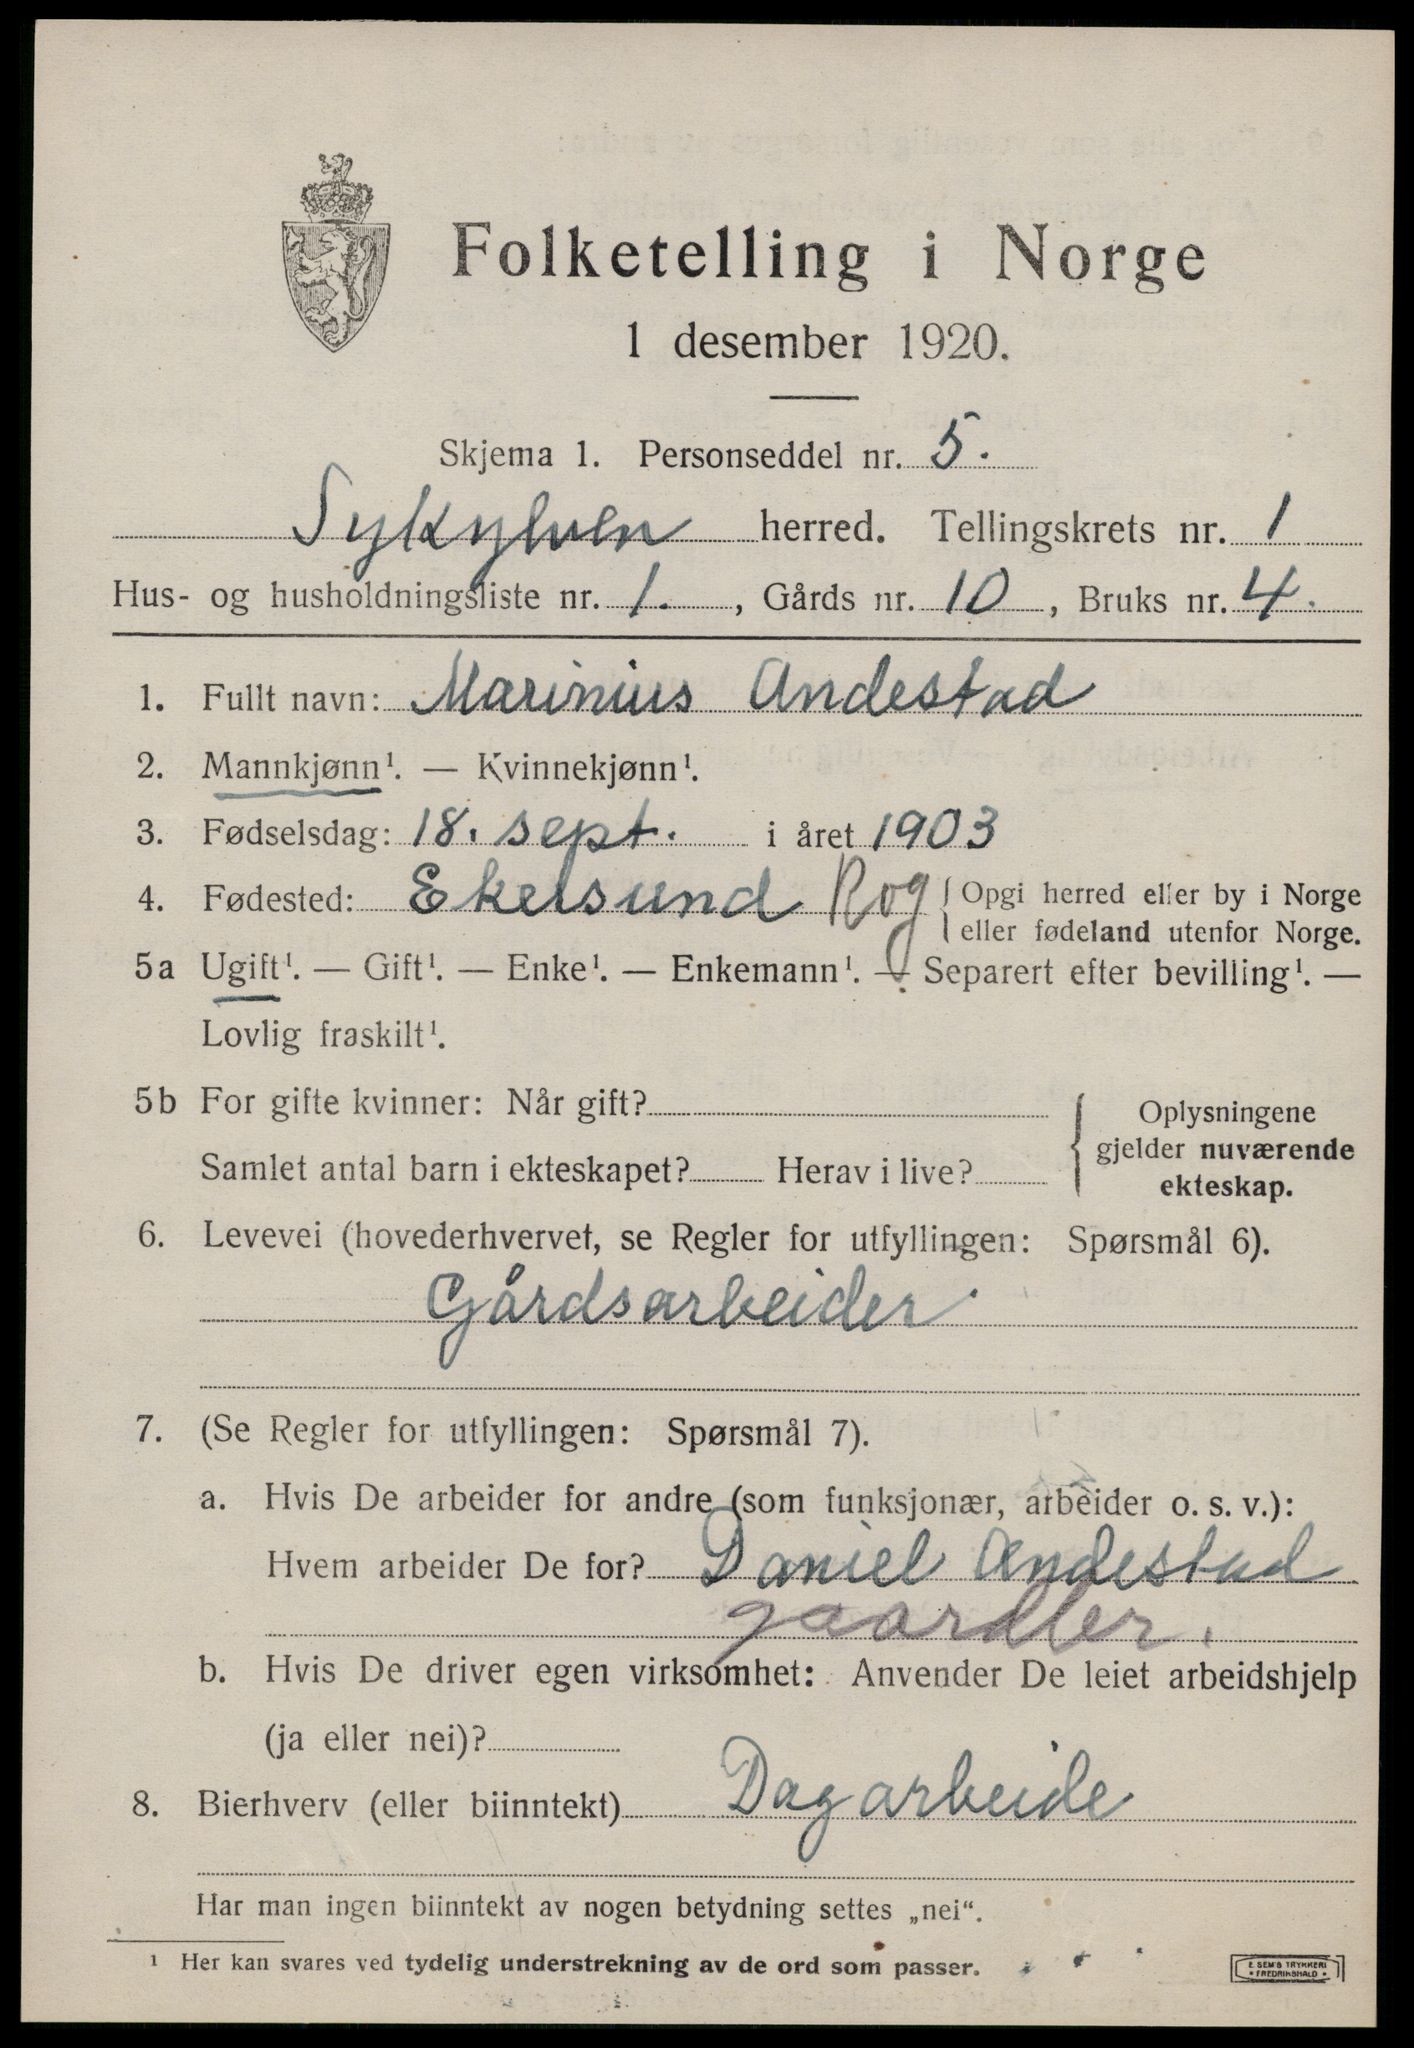 Folketelling i Norge
1 desember 1920.
Skjema 1. Personseddel nr. 5.
Sykylven herred. Tellingskrets nr. 1
Hus- og husholdningsliste nr. 1., Gårds nr. 10, Bruks nr. 4.
1. Fullt navn: Marinius Andestad
2. Mannkjønn¹. — Kvinnekjønn¹.
3. Fødselsdag: 18. sept. i året 1903
4. Fødested: Ekersund Rog { Opgi herred eller by i Norge
eller fødeland utenfor Norge.
5a Ugift¹. — Gift¹. — Enke¹. — Enkemann¹. — Separert efter bevilling¹. —
Lovlig fraskilt¹.
5b For gifte kvinner: Når gift?
Samlet antal barn i ekteskapet? Herav i live?
{ Oplysningene
gjelder nuværende
ekteskap.
6. Levevei (hovederhvervet, se Regler for utfyllingen: Spørsmål 6).
Gårdsarbeider
7. (Se Regler for utfyllingen: Spørsmål 7).
a. Hvis De arbeider for andre (som funksjonær, arbeider o. s. v.):
Hvem arbeider De for? Daniel Andestad
gaardbr.
b. Hvis De driver egen virksomhet: Anvender De leiet arbeidshjelp
(ja eller nei)?
8. Bierhverv (eller biinntekt) Dagarbeide
Har man ingen biinntekt av nogen betydning settes „nei“.
¹ Her kan svares ved tydelig understrekning av de ord som passer.
E SEM'S TRYKKERI
• FREDRIKSHALD •